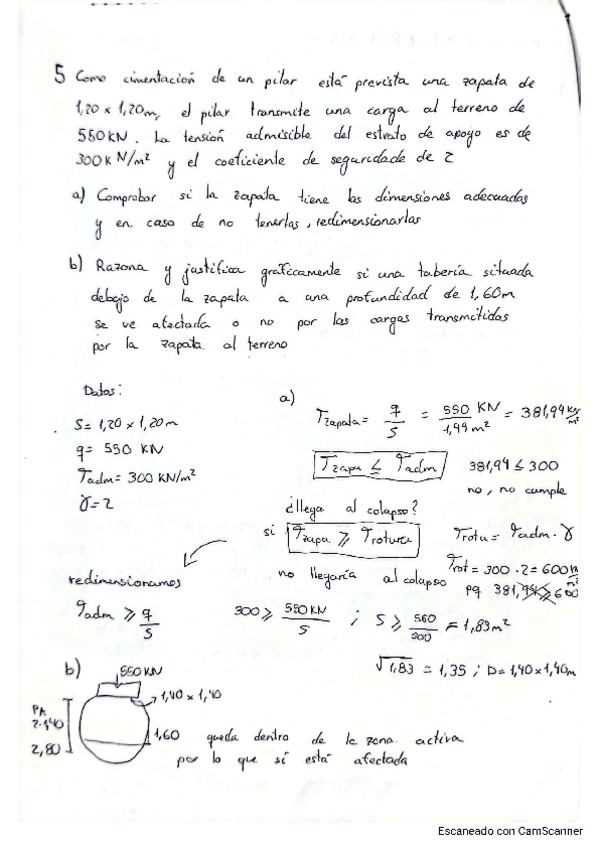 5 Como cimentación de un pilar está prevista una zapata de
1,20 x 1,20m, el pilar transmite una carga al terreno de
550KN. La tensión admisible del estrato de apoyo es de
300KN/m² y el coeficiente de seguridade de 2
a) Comprobar si la zapata tiene las dimensiones adecuadas
y en caso de no tenerlas, redimensionarlas
b) Razona y justifica gráficamente si una tubería situada
debajo de la zapata a una profundidad de 1,60m
se ve afectada o no por las cargas transmitidas
por la zapata al terreno
Datos:
S = 1,20 x 1,20m
q = 550 KN
σadm = 300 KN/m²
γ = 2
a)
σzapata = q/S = 550 KN/1,44 m² = 381,94 KN/m²
σzapa ≤ σadm 381,94 ≤ 300
no, no cumple
¿llega al colapso?
si σzapa ≥ σrotura σrotu = σadm · γ
σrot = 300 · 2 = 600 KN/m²
no llegaría al colapso pq 381,94 ≱ 600
redimensionamos
qadm ≥ q/S 300 ≥ 550KN/S ; S ≥ 560/300 = 1,83m²
√1,83 = 1,35 ; D = 1,40 x 1,40m
b)
550KN
1,40 x 1,40
PA
2·1,40
2,80
1,60
queda dentro de la zona activa
por lo que sí está afectada
Escaneado con CamScanner